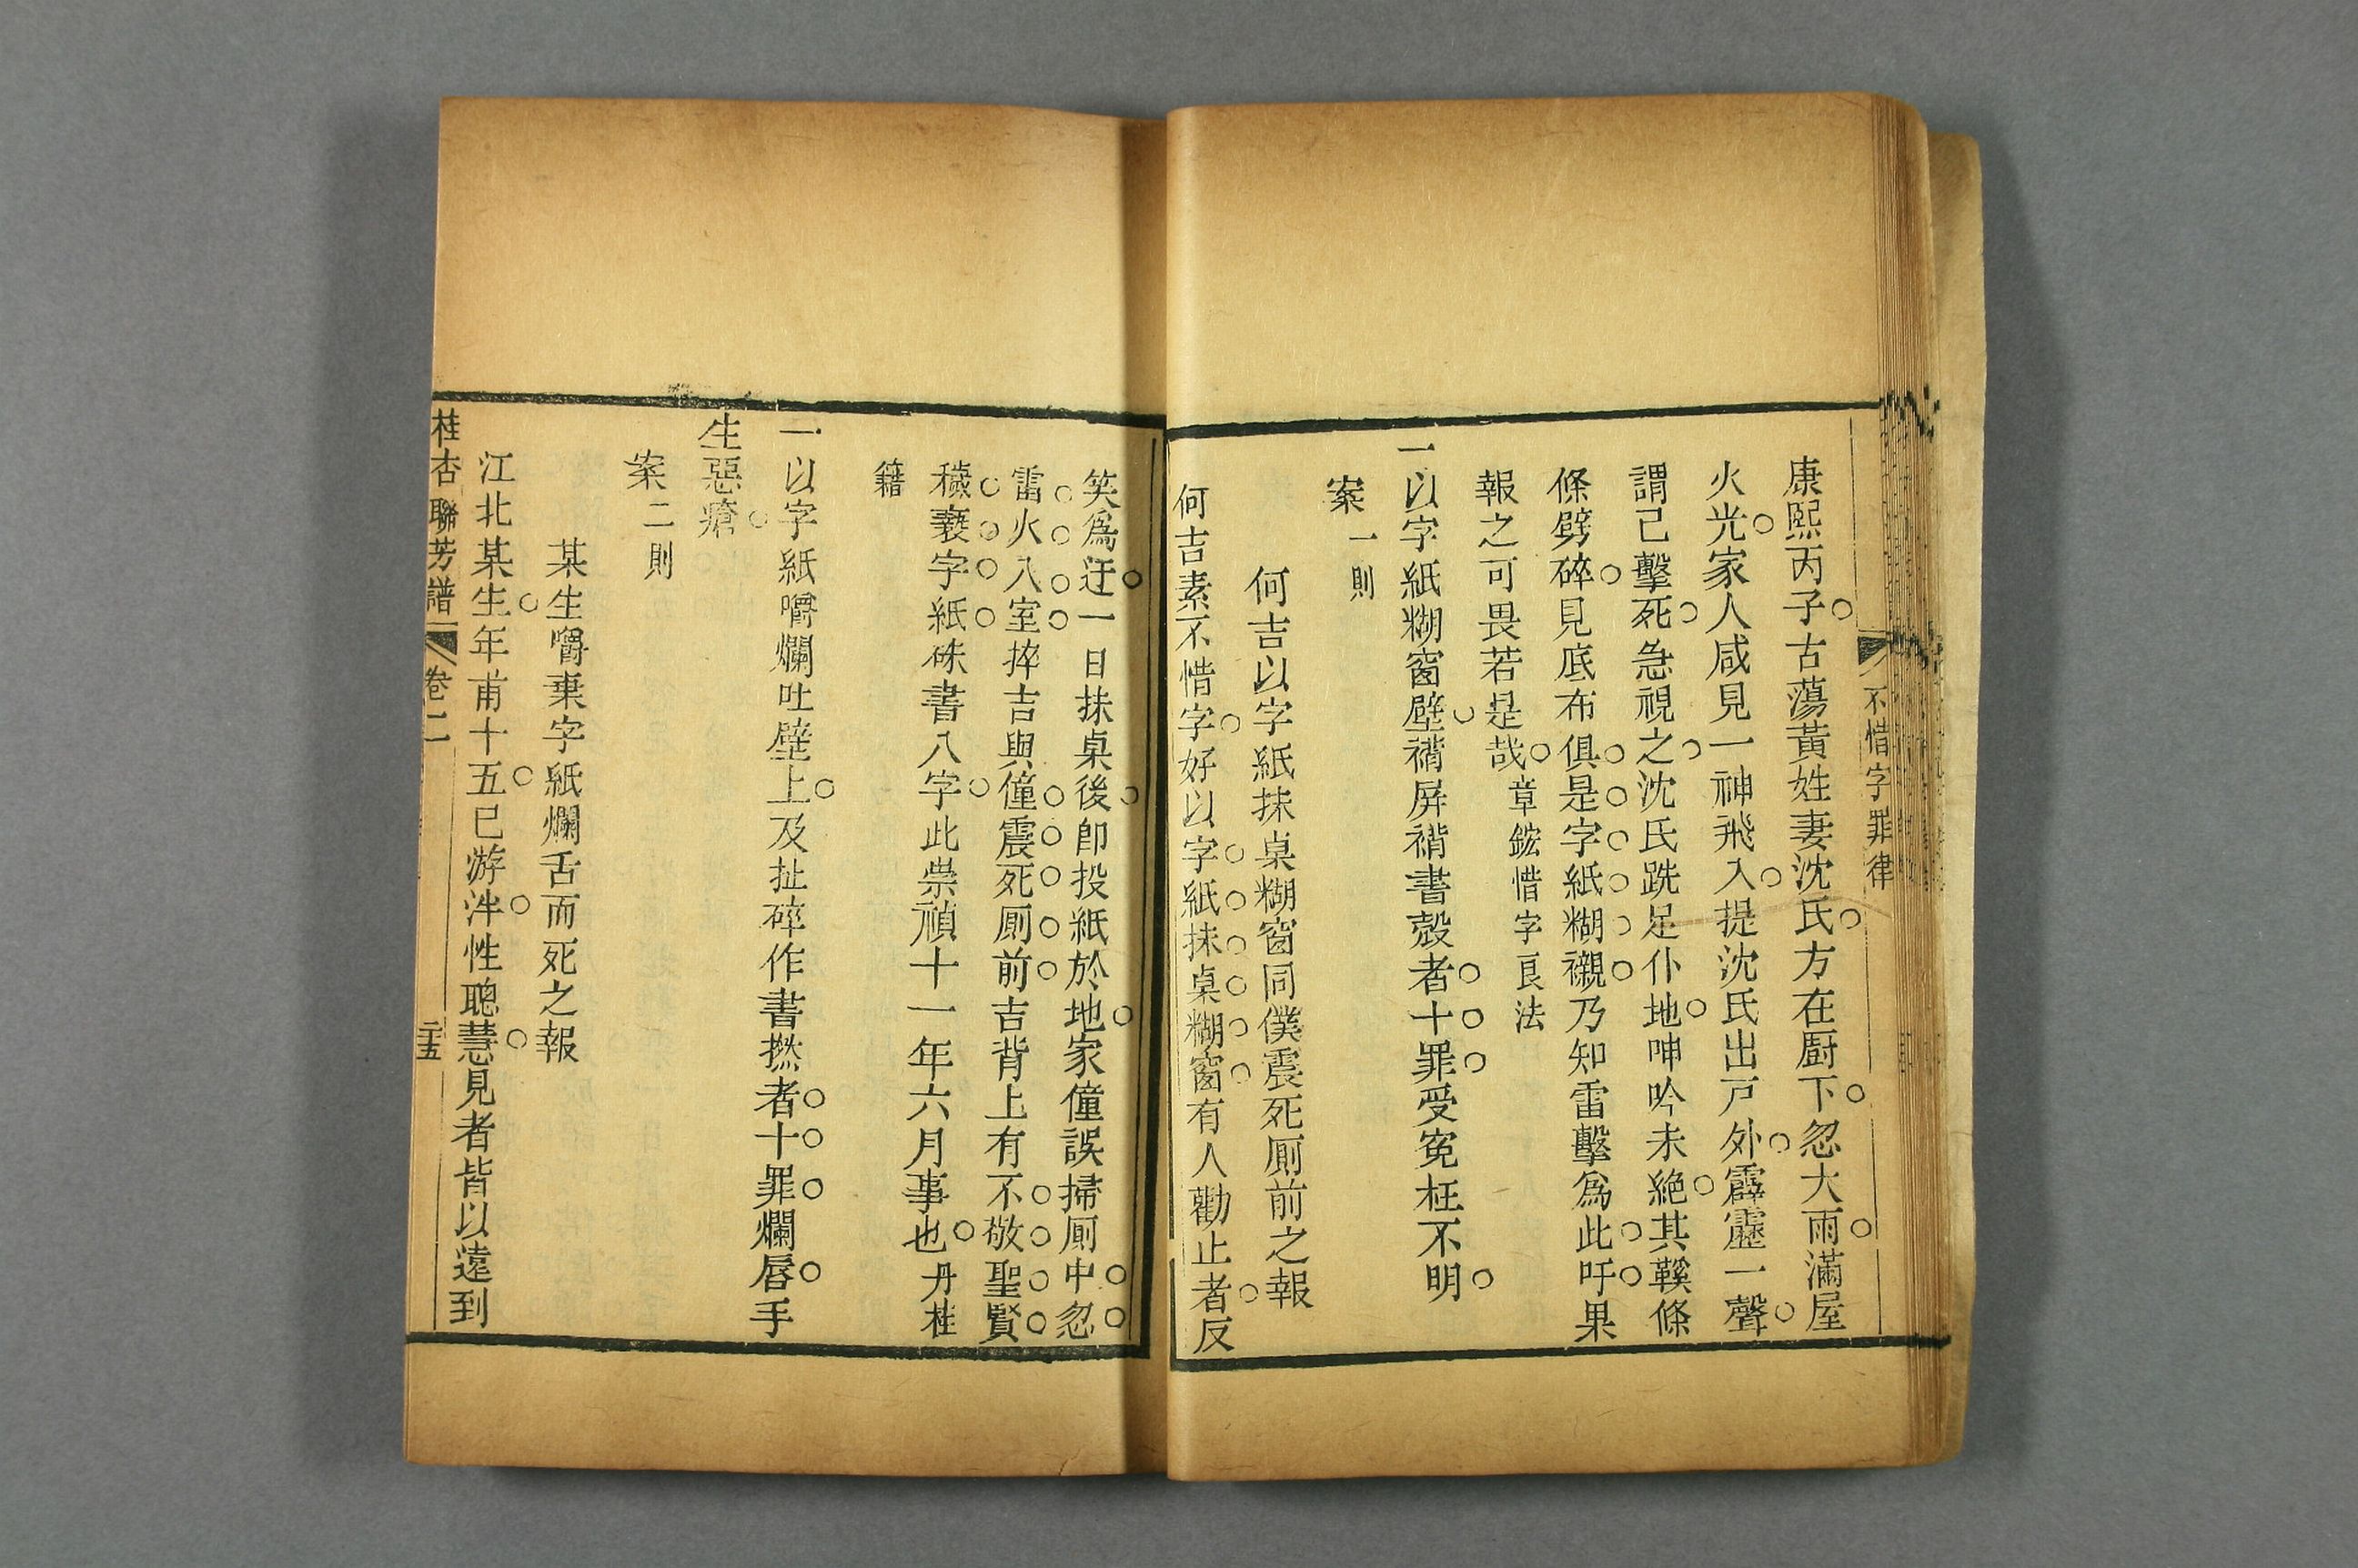 不惜字罪律
康熙丙子古蕩黃姓妻沈氏方在厨下忽大雨滿屋
火光家人咸見一神飛入提沈氏出戸外霹靂一聲
謂已擊死急視之沈氏跣足仆地呻吟未絕其鞵條
條劈碎見底布俱是字紙糊襯乃知雷擊爲此吁果
報之可畏若是哉章鋐惜字良法
一以字紙糊窗壁褙屏褙書殼者十罪受寃枉不明
案一則
何吉以字紙抹桌糊窗同僕震死厠前之報
何吉素不惜字好以字紙抹桌糊窗有人勸止者反
笑爲迂一日抹桌後卽投紙於地家僮誤掃厠中忽
雷火入室捽吉與僮震死厠前吉背上有不敬聖賢
穢褻字紙硃書八字此崇禎十一年六月事也丹桂
籍
一以字紙嚼爛吐壁上及扯碎作書撚者十罪爛唇手
生惡瘡
案二則
某生嚼棄字紙爛舌而死之報
江北某生年甫十五已游泮性聰慧見者皆以遠到
桂杏聯芳譜 卷二 二十五